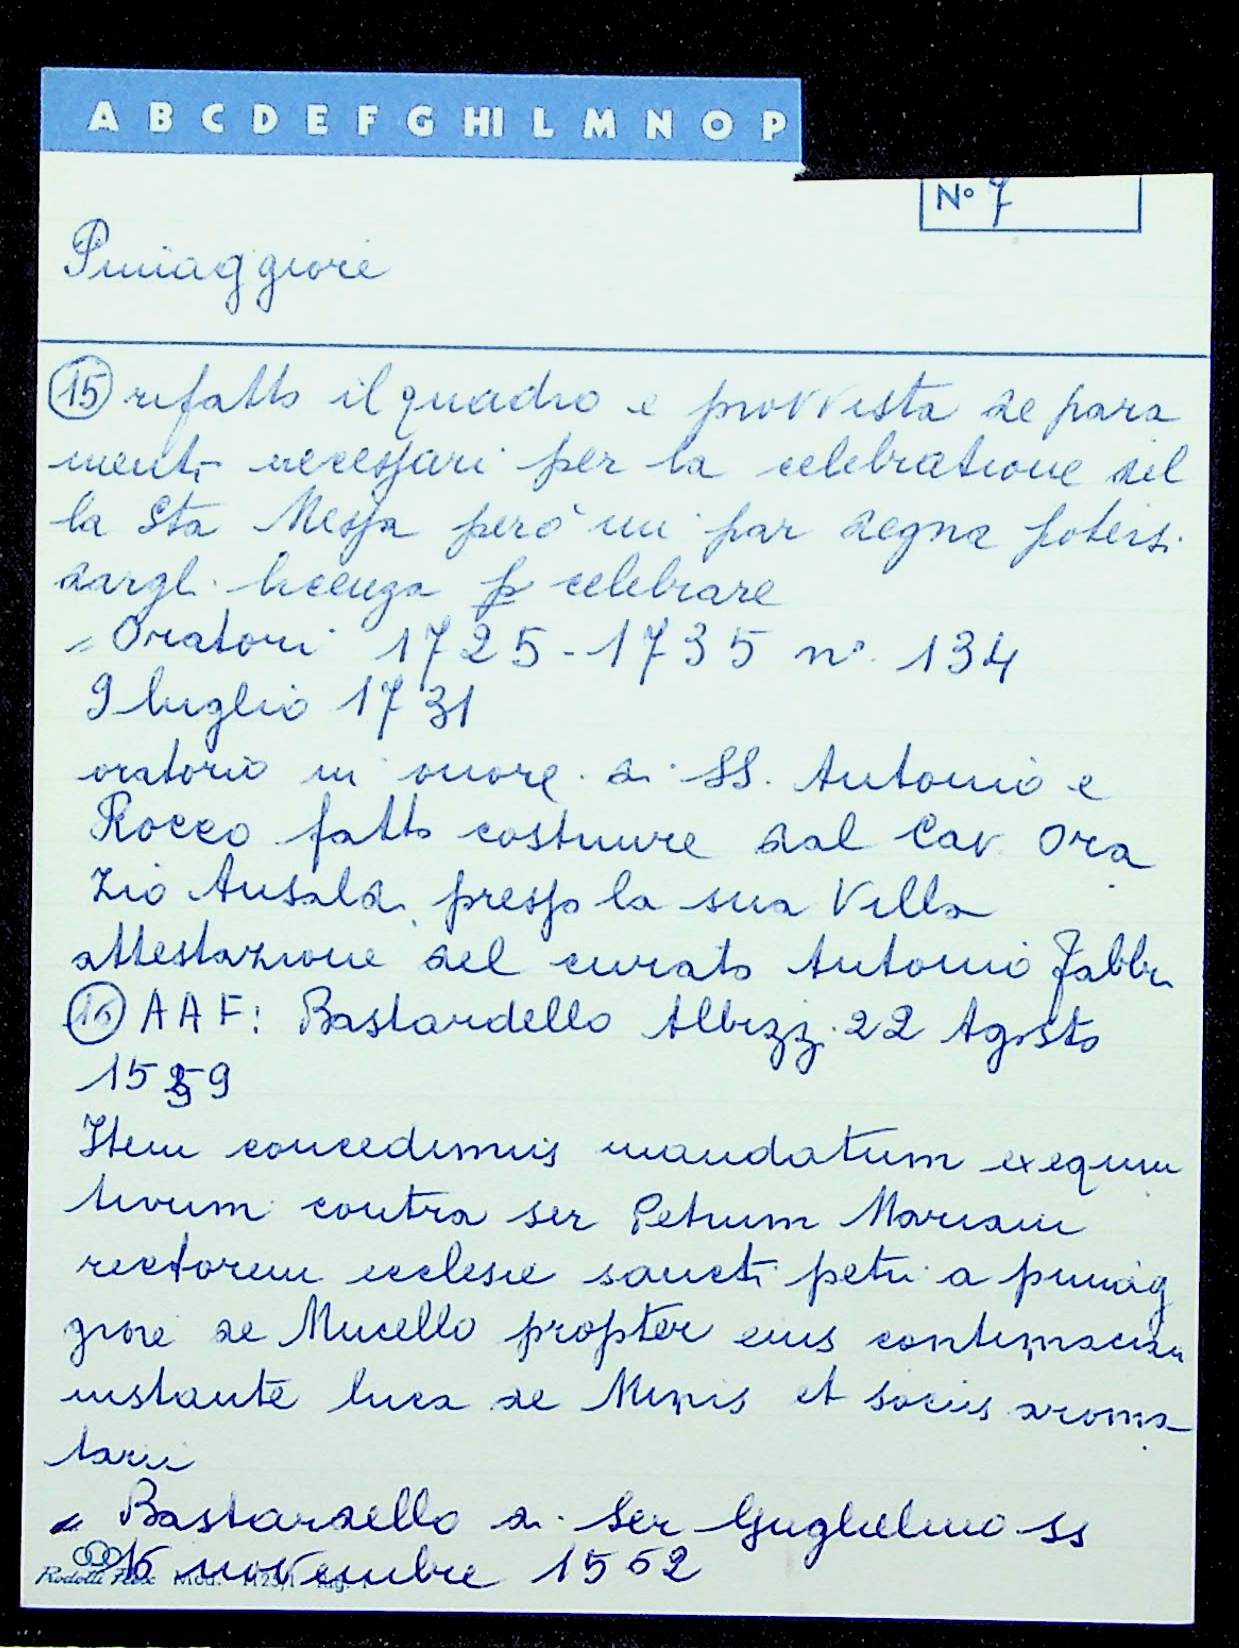 A B C D E F G HI L M N O P
Nº 7
Pimaggiore
15 rifatto il quadro e provvista de para
menti necessari per la celebratione del
la Sta Messa però mi par degna potersi
dargli licenza p celebrare
" Oratori 1725-1735 nº. 134
9 luglio 1731
oratorio in onore di SS. Antonio e
Rocco fatto costruire dal Cav. Ora
zio Ansaldi presso la sua Villa
attestazione del curato Antonio Fabbri
16 AAF: Bastardello Albizzi 22 Agosto
1559
Item concedimus mandatum exequu
tivum contra ser Petrum Mariam
rectorem ecclesie sancti petri a pimag
giore de Mucello propter eius contumaciam
instante luca de Minis et sociis aroma
tarii
" Bastardello di Ser Guglielmo ss
15 novembre 1562
Rodotti Flex Mod.